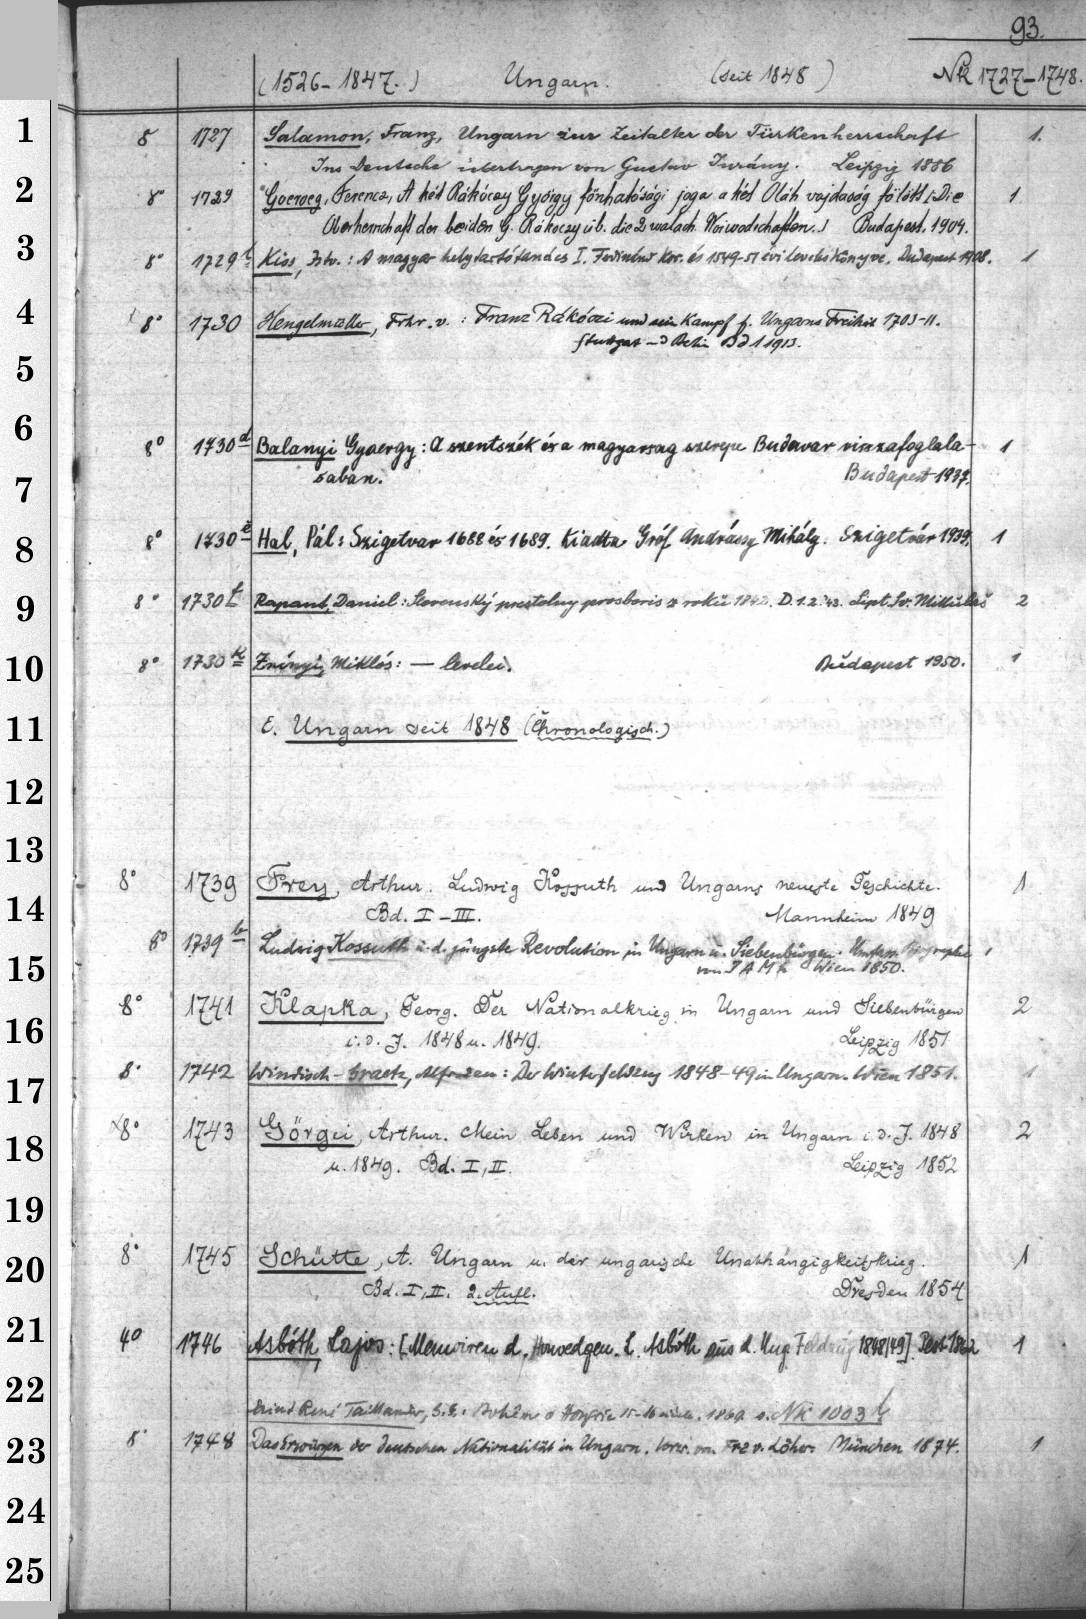 93.
(1526-1847.) Ungarn. (seit 1848) NK 1727-1748.
1
8 1727 Salamon, Franz, Ungarn zur Zeitalter der Türkenherrschaft 1.
Ins Deutsche übertragen von Gustav Jurány. Leipzig 1886
2
8° 1729 Goeroeg, Ferencz, A két Rákóczy György fönhatósági joga a két Oláh vajdaság fölött (Die 1
Oberherrschaft der beiden G. Rákoczy üb. die 2 walach. Woiwodschaften.) Budapest, 1904.
3
8° 1729 b Kiss, Istv.: A magyar helytartótanács I. Ferdinánd kor. és 1549-51 évi leveleskönyve. Budapest 1908. 1
4
8° 1730 Hengelmüller, Frhr. v.: Franz Rákóczi und sein Kampf f. Ungarns Freiheit 1703-11.
Stuttgart Berlin Bd 1 1913.
5
6
8° 1730 d Balanyi Gyoergy: A szentszék és a magyarsag szerepe Budavar visszafoglala- 1
7
saban. Budapest 1937.
8
8° 1730 e Hal, Pál: Szigetvar 1688 és 1689. Kiadta Gróf Andrássy Mihály. Szigetvár 1939. 1
9
8° 1730 f Rapant, Daniel: Slovenský prestolny prosbopis z roku 1842. D. 1.2. '43. Lipt. Sv. Mikuláš 2
10
8° 1730 k Zrínyi, Miklós: — levelei. Budapest 1950. 1
11
E. Ungarn seit 1848 (Chronologisch.)
12
13
8° 1739 Frey, Arthur. Ludwig Kossuth und Ungarns neueste Geschichte. 1
14
Bd. I-III. Mannheim 1849
8° 1739 b Ludwig Kossuth u. d. jüngste Revolution in Ungarn u. Siebenbürgen. 1
15
Wien 1850.
8° 1741 Klapka, Georg. Der Nationalkrieg in Ungarn und Siebenbürgen 2
16
i. d. J. 1848 u. 1849. Leipzig 1851
17
8° 1742 Windisch-Graetz, Alfr. : Der Winterfeldzug 1848-49 in Ungarn. Wien 1851. 1
8° 1743 Görgei, Arthur. Mein Leben und Wirken in Ungarn i. d. J. 1848 2
18
u. 1849. Bd. I, II. Leipzig 1852
19
8° 1745 Schütte, A. Ungarn u. der ungarische Unabhängigkeitskrieg. 1
20
Bd. I, II. 2. Aufl. Dresden 1854
21
4° 1746 Asbóth, Lajos: [Memoiren d. Honvedgen. L. Asbóth aus d. Ung. Feldzug 1848/49]. Pest 1862 1
22
Saint René Taillandier, E. : Bohême o Hongrie 15-16 siècle. 1869 s. NK 1003
23
8° 1748 Das Erwürgen der deutschen Nationalität in Ungarn. Vorw. von Frz v. Löher München 1874. 1
24
25